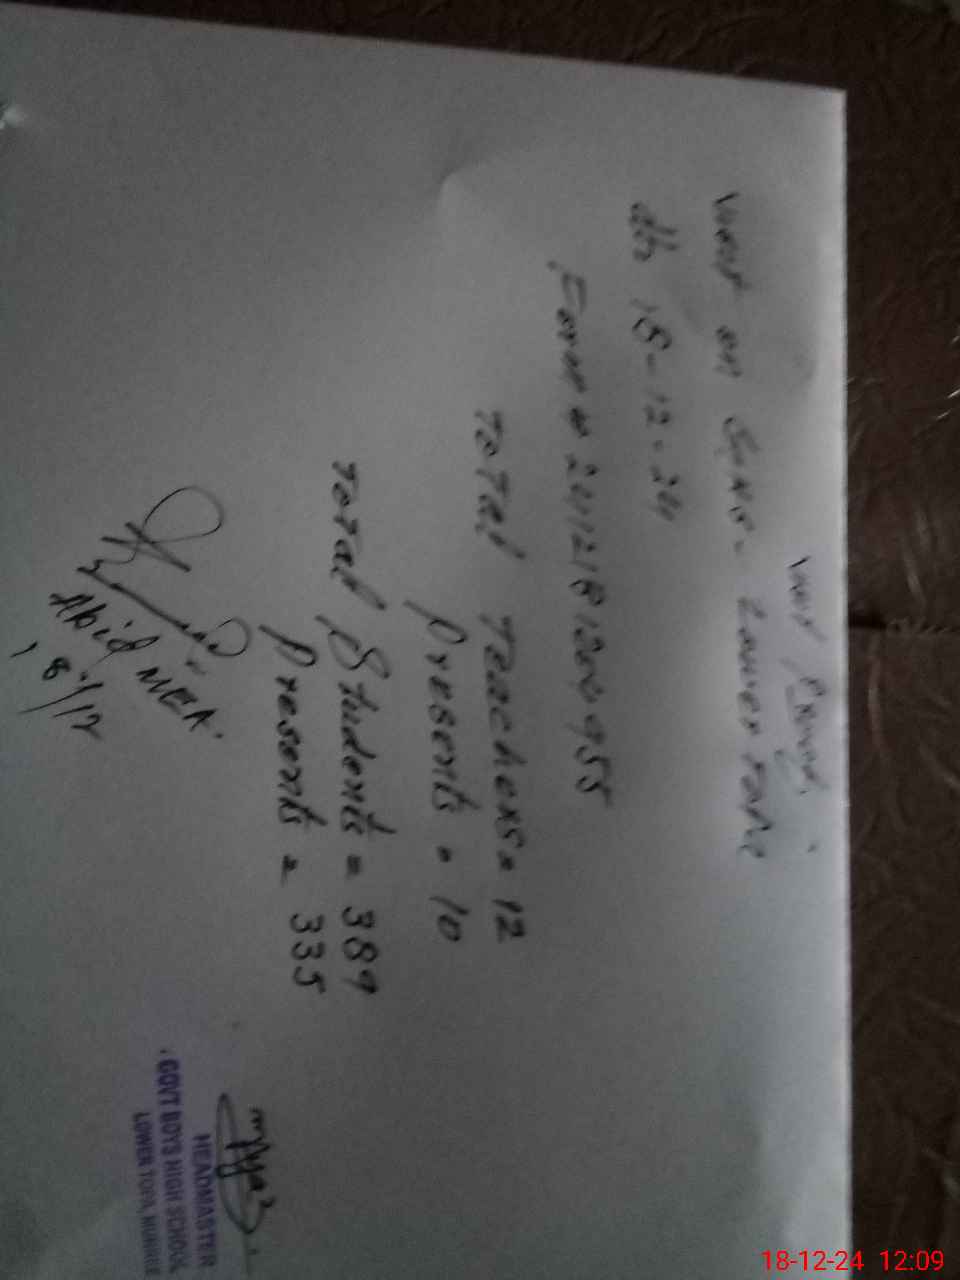 Visit Proof.
Visit on GHS- Lower Topa
dt: 18-12-24
Form # 2412181209955
Total Teachers = 12
Presents = 10
Total Students = 389
Presents = 335
Abid MEA.
18/12
HEADMASTER
GOVT BOYS HIGH SCHOOL
LOWER TOPA, MURREE
18-12-24 12:09